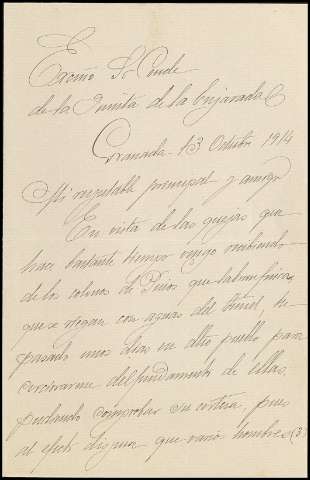 Excmo Sr Conde
de la Quinta de la Enjarada
Granada 13 Octubre 1914
Mi respetable principal y amigo
En vista de las quejas que
hace bastante tiempo vengo recibiendo
de los colonos de Pinos que labran fincas,
que se riegan con aguas del tunel, he
pasado unos dias en dicho pueblo para
cerciorarme del fundamento de ellas,
pudiendo comprobar su certeza, pues
al efecto dispuse que varios hombres (3